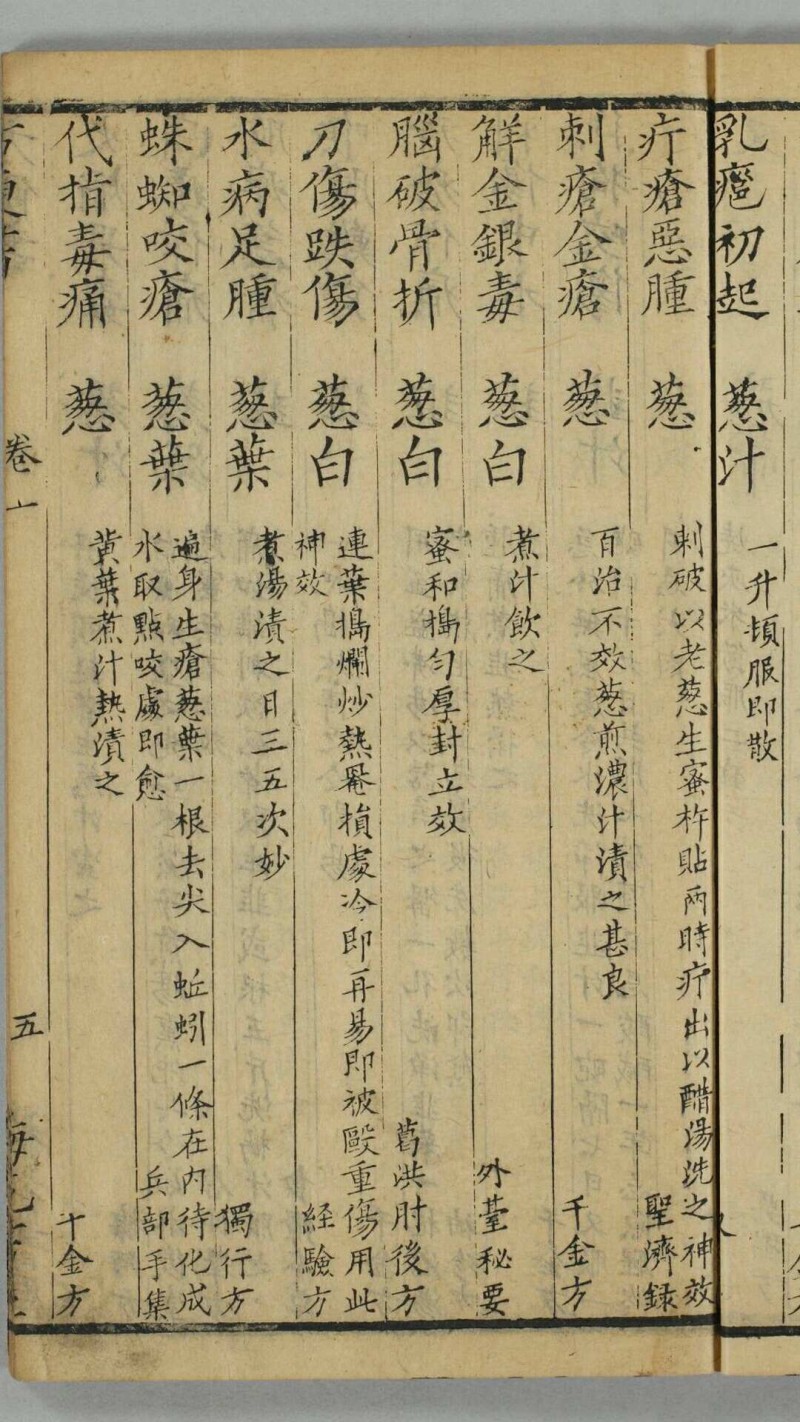 乳癰初起 葱汁 一升頓服即散
疔瘡惡腫 葱 刺破以老葱生蜜杵貼兩時疔出以醋湯洗之神效 聖濟錄
刺瘡金瘡 葱 百治不效葱煎濃汁漬之甚良 千金方
解金銀毒 葱白 煮汁飲之 外臺秘要
腦破骨折 葱白 蜜和搗勻厚封立效 葛洪肘後方
刀傷跌傷 葱白 連葉搗爛炒熱罨損處冷即再易即被毆重傷用此
神效 経驗方
水病足腫 葱葉 煮湯漬之日三五次妙 獨行方
蛛蜘咬瘡 葱葉 遍身生瘡葱葉一根去尖入蚯蚓一條在内待化成
水取點咬處即愈 兵部手集
代指毒痛 葱 黄葉煮汁熱漬之 千金方
卷一 五